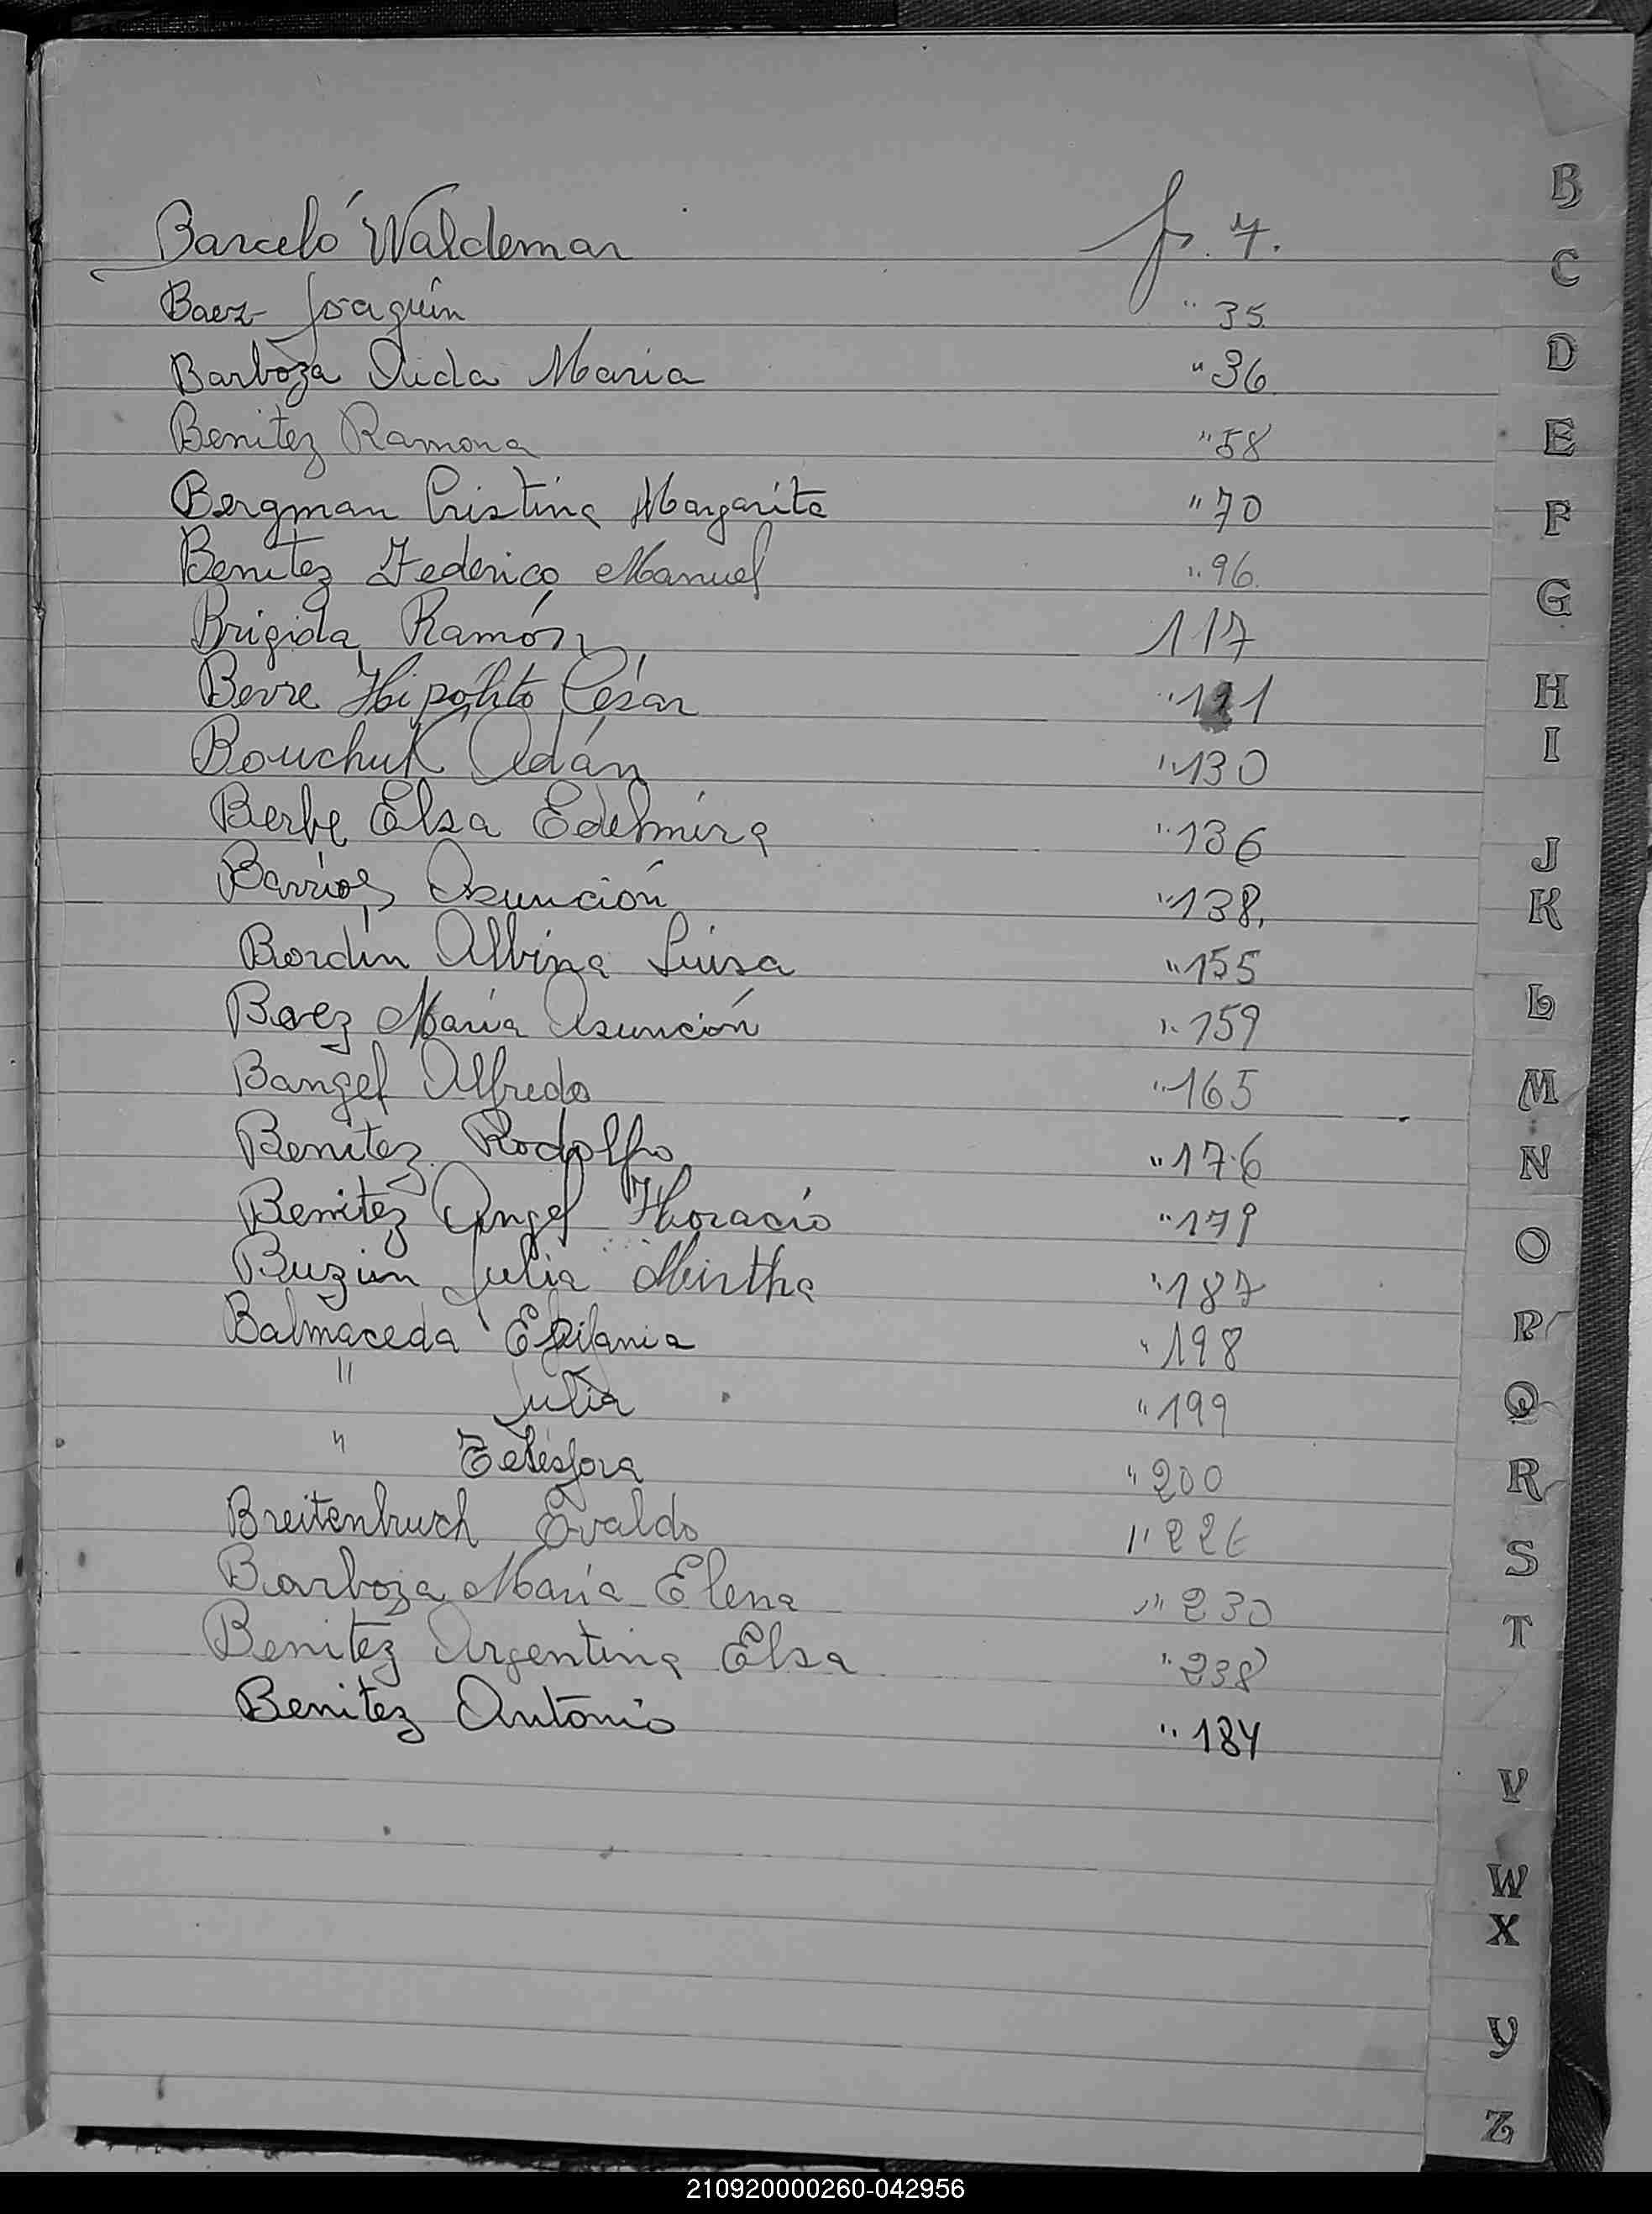 Barceló Waldemar fs. 7.
Baez Joaquín " 35
Barboza Maria " 36
Benitez Ramona " 58
Bergman Cristina Margarita " 70
Benitez Federico Manuel " 96.
Brigida Ramón 117
Berre Hipólito César "
Bouchuk Adán " 130
Berbe Elsa Edelmira " 136
Barrios Asunción " 138,
Bordín Albina Luisa " 155
Baez María Asunción " 159
Bangel Alfredo " 165
Benitez Rodolfo " 176
Benitez Angel Horacio " 179
Buzun Julia Mirtha " 187
Balmaceda Epifania " 198
" Julia " 199
" Telésfora " 200
Breitenbruch Evaldo " 226
Barboza María Elena " 230
Benitez Argentina Elsa " 238
Benitez Antonio " 184
B
C
D
E
F
G
H
I
J
K
L
M
N
O
P
Q
R
S
T
V
W
X
Y
Z
210920000260-042956